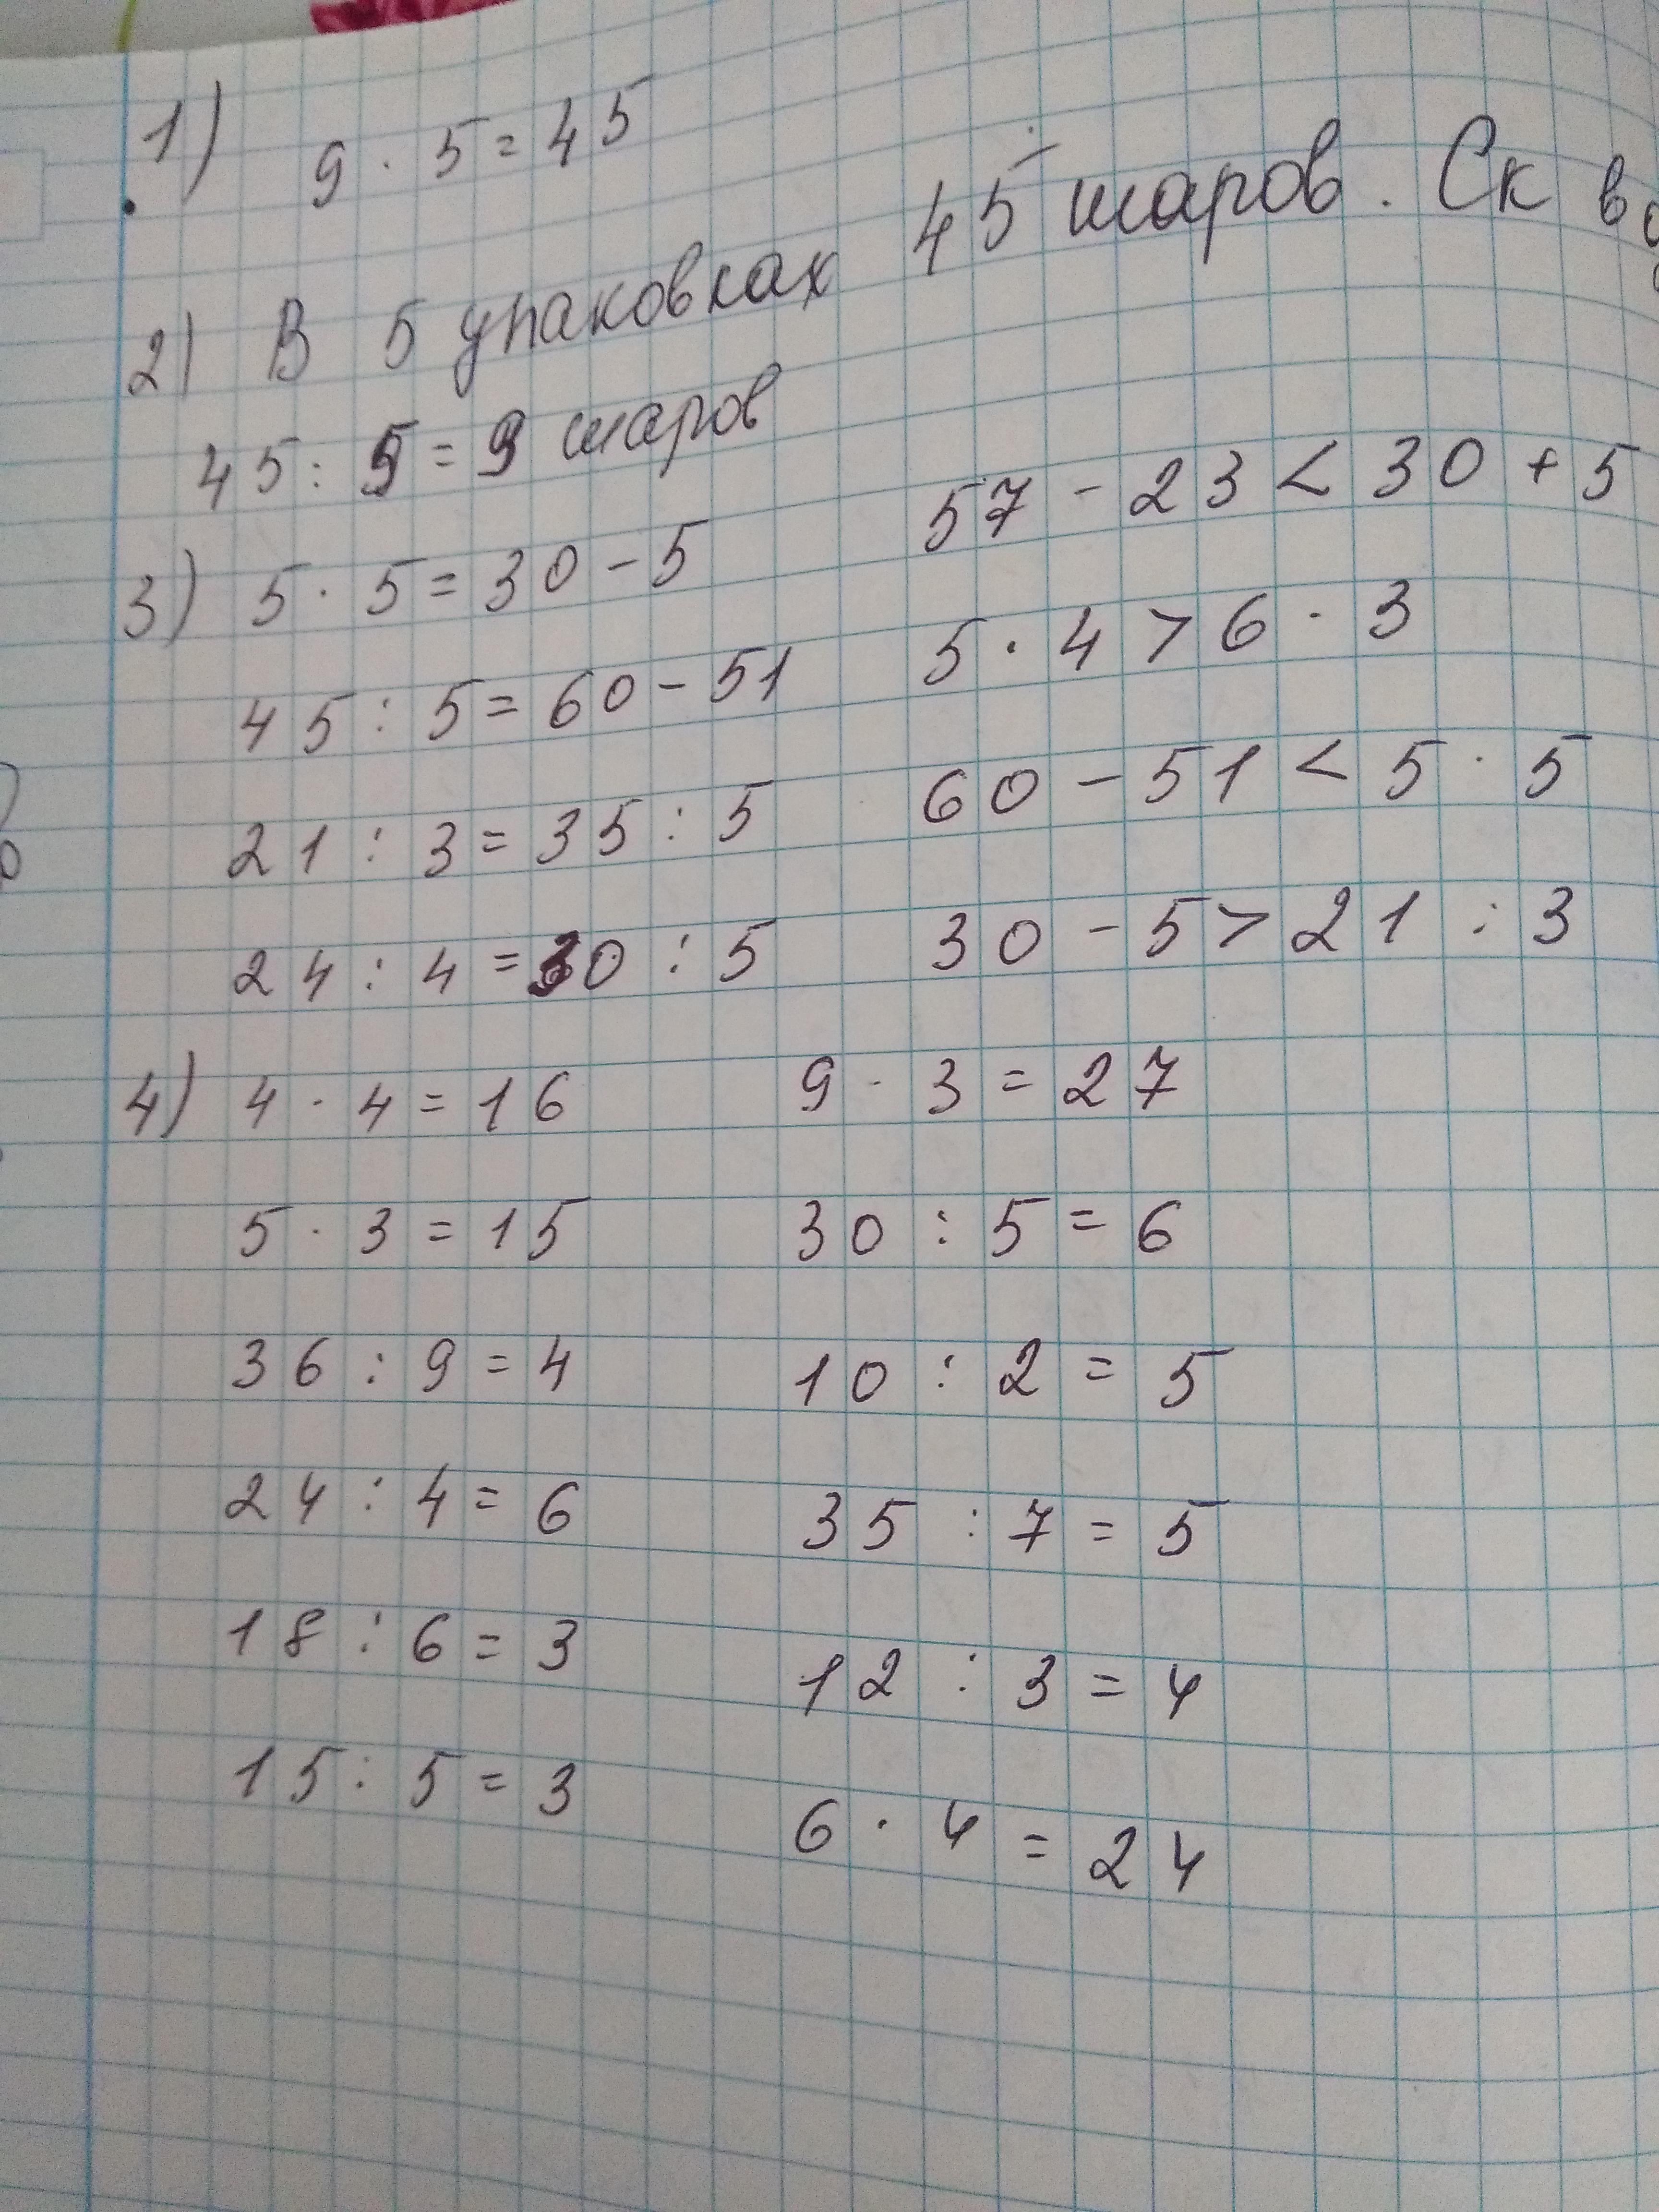 1) 9 · 5 = 45
2) В 5 упаковках 45 шаров. Ск в
45 : 5 = 9 шаров
3) 5 · 5 = 30 - 5 57 - 23 < 30 + 5
45 : 5 = 60 - 51 5 · 4 > 6 · 3
21 : 3 = 35 : 5 60 - 51 < 5 · 5
24 : 4 = 30 : 5 30 - 5 > 21 : 3
4) 4 · 4 = 16 9 · 3 = 27
5 · 3 = 15 30 : 5 = 6
36 : 9 = 4 10 : 2 = 5
24 : 4 = 6 35 : 7 = 5
18 : 6 = 3 12 : 3 = 4
15 : 5 = 3 6 · 4 = 24